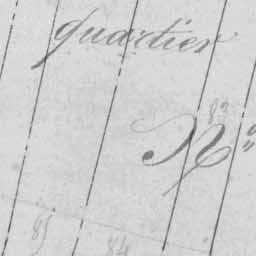 quartier
89
N°
85
84